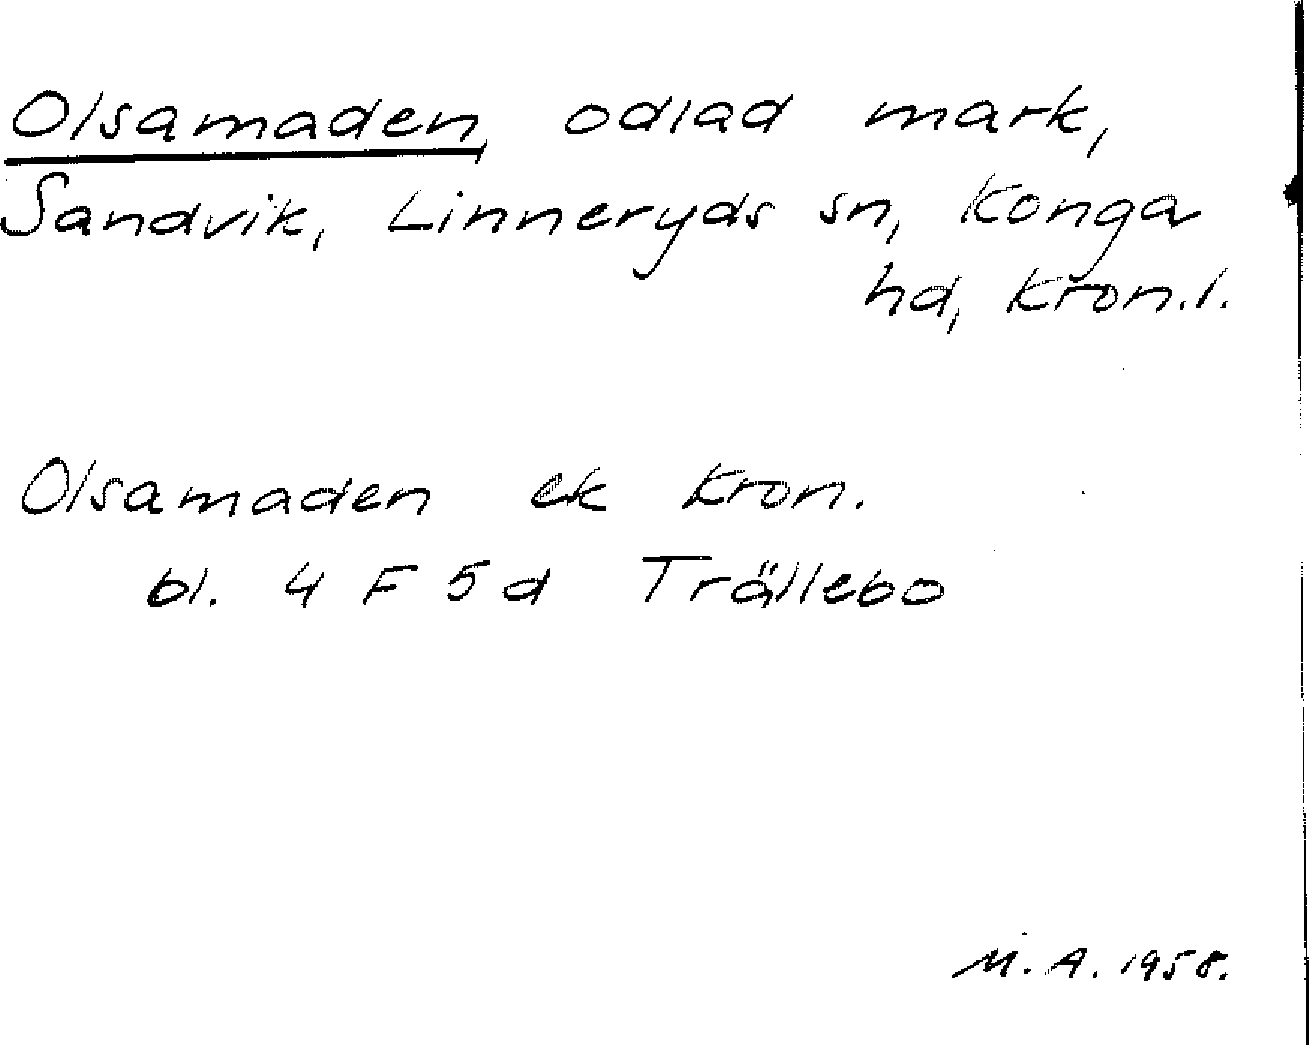 Olsamaden, odlad mark,
Sandvik, Linneryds sn, Konga
hd, Kron.l.
Olsamaden ek Kron.
bl. 4 F 5 d Trällebo
M. A. 1958.